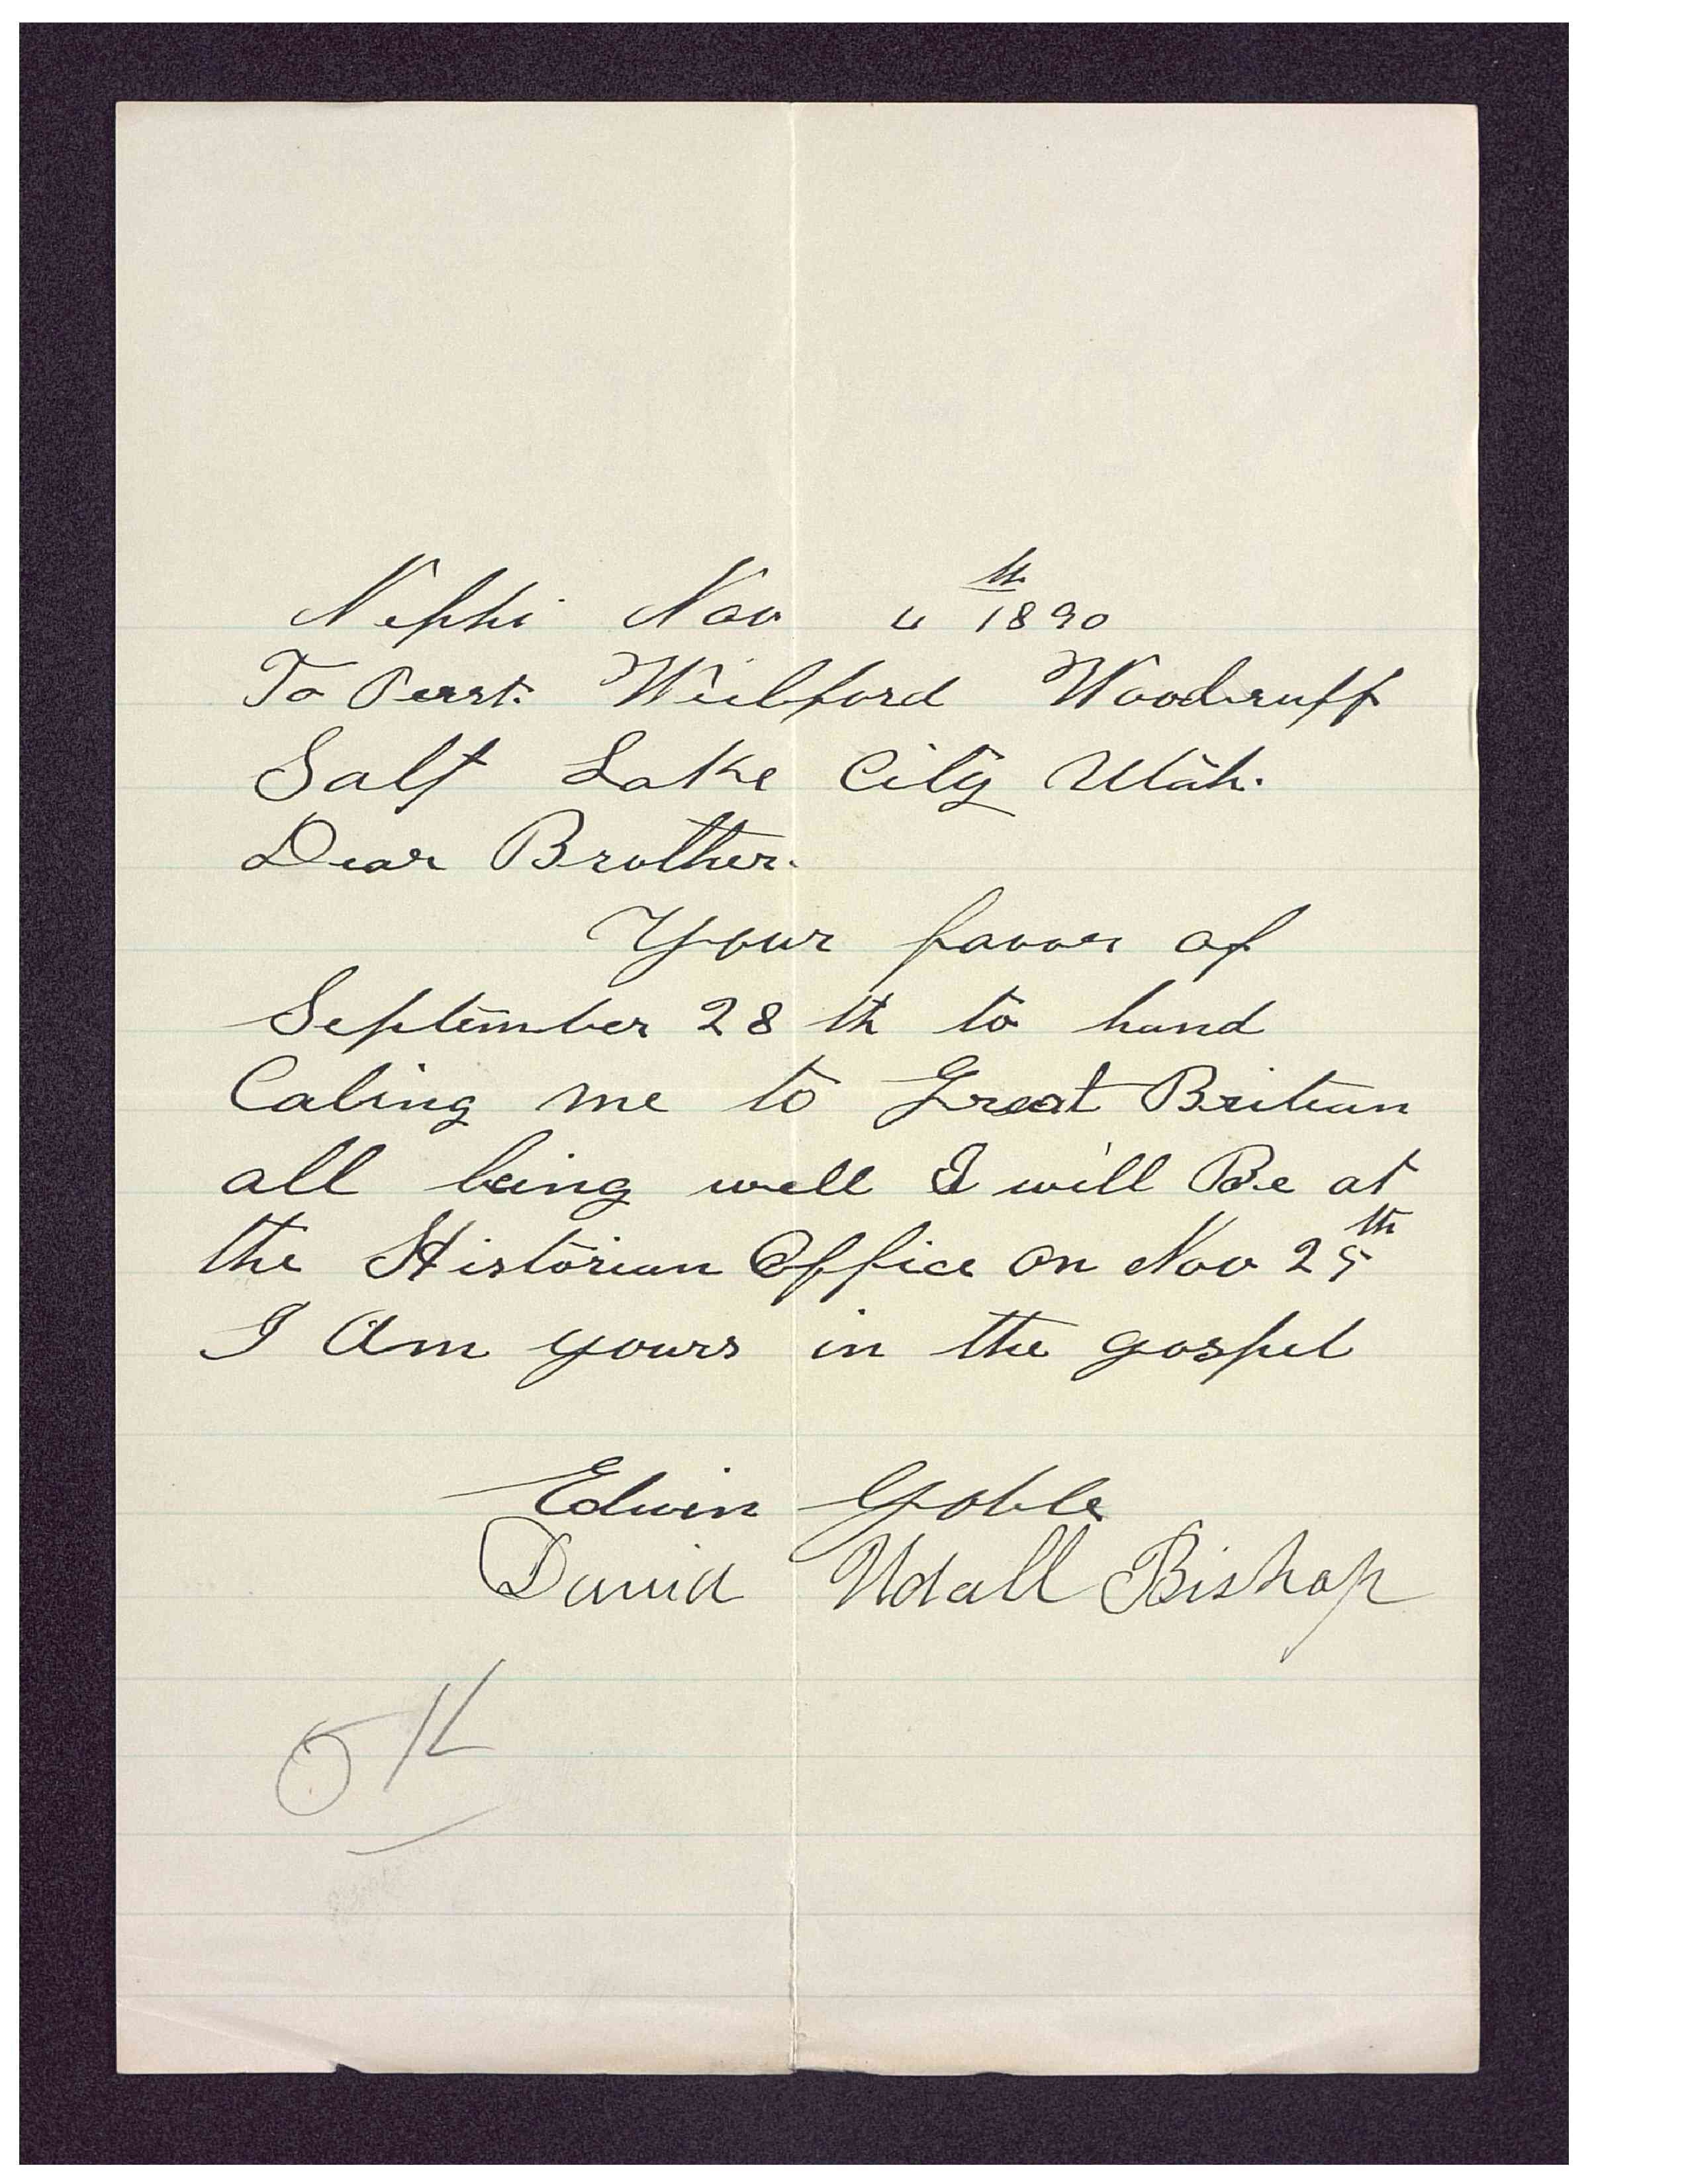 Nephi Nov 4 th 1890
To Perst. Wilford Woodruff
Salt Lake City Utah.
Dear Brother.
Your favor of
September 28 th to hand
Caling me to Great Britian
all being well I will Be at
the Historian Office on Nov 25th
I Am yours in the gospel
Edwin Goble
David Udall Bishop
OK